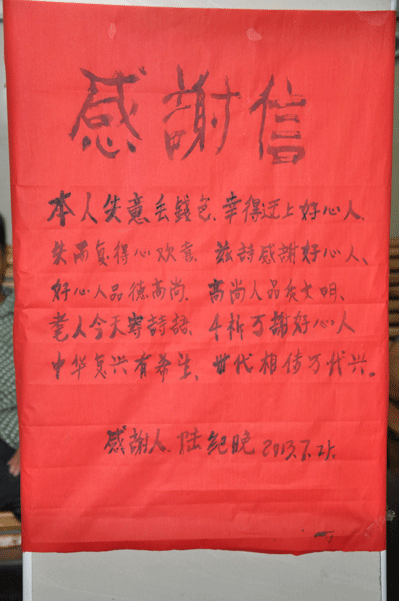 感謝信
本人失意丢錢包.幸得迂上好心人.
失而复得心欢喜、兹詩感謝好心人、
好心人品德高尚、高尚人品文明、
老人今天寄詩語、千祈万謝好心人
中华复兴有希望、世代相传万代兴。
感謝人.陆纪晚 2013.7.25.